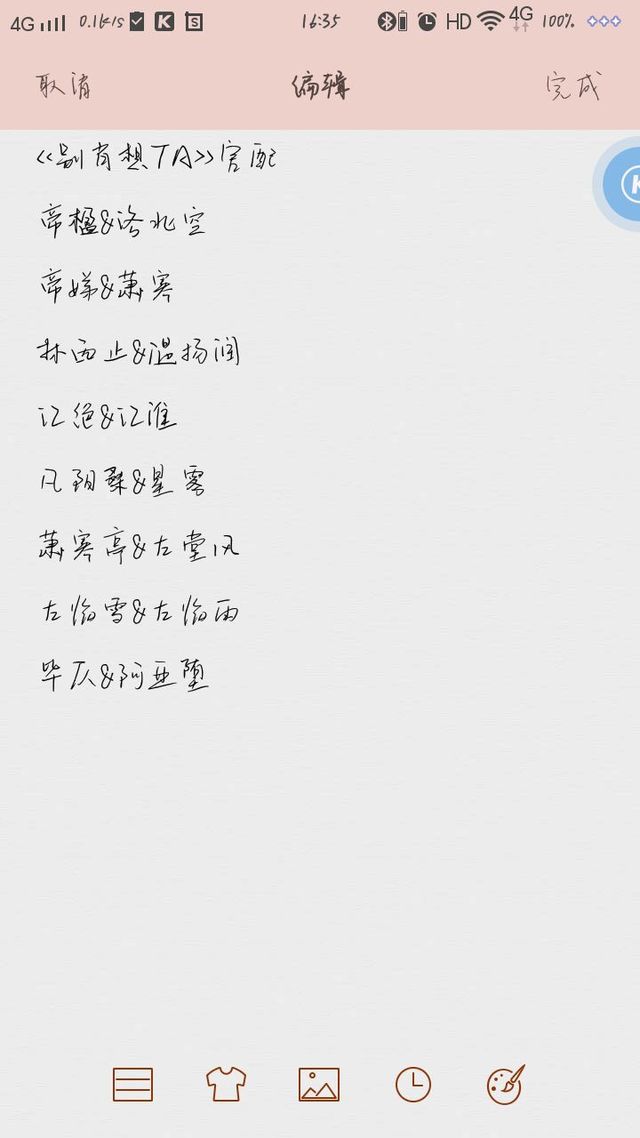 4G 0.1k/s K S 16:35 HD 4G 100%
取消 编辑 完成
《别肖想TA》官配
帝楹&洛北空
帝娣&萧寒
林西止&温扬润
江绝&江淮
凡阳桑&星零
萧寒亭&左堂风
左临雪&左临雨
毕仄&阿亚堕
K